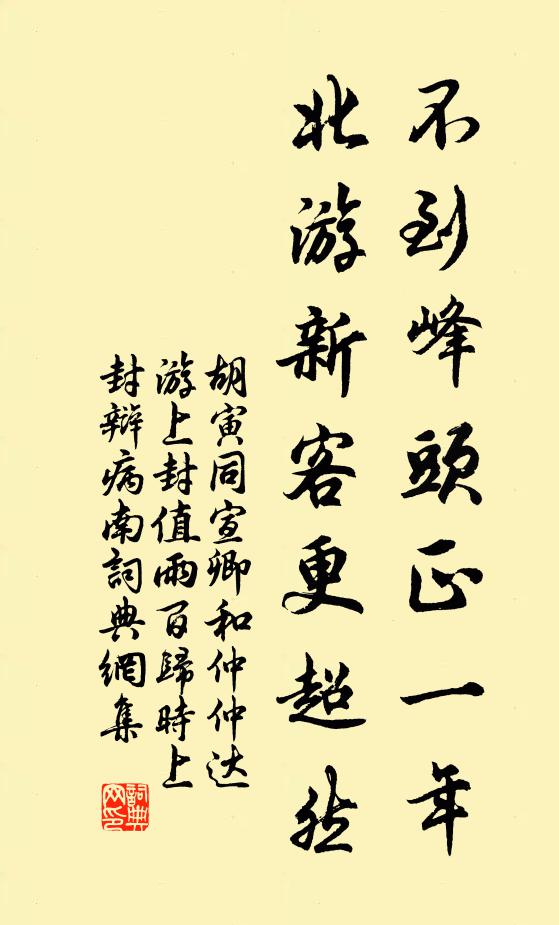 不到峰頭正一年
北游新客更超然
胡寅同宣卿和仲仲达
游上封值雨百歸時上
封辯病南詞典網集
詞典
网印